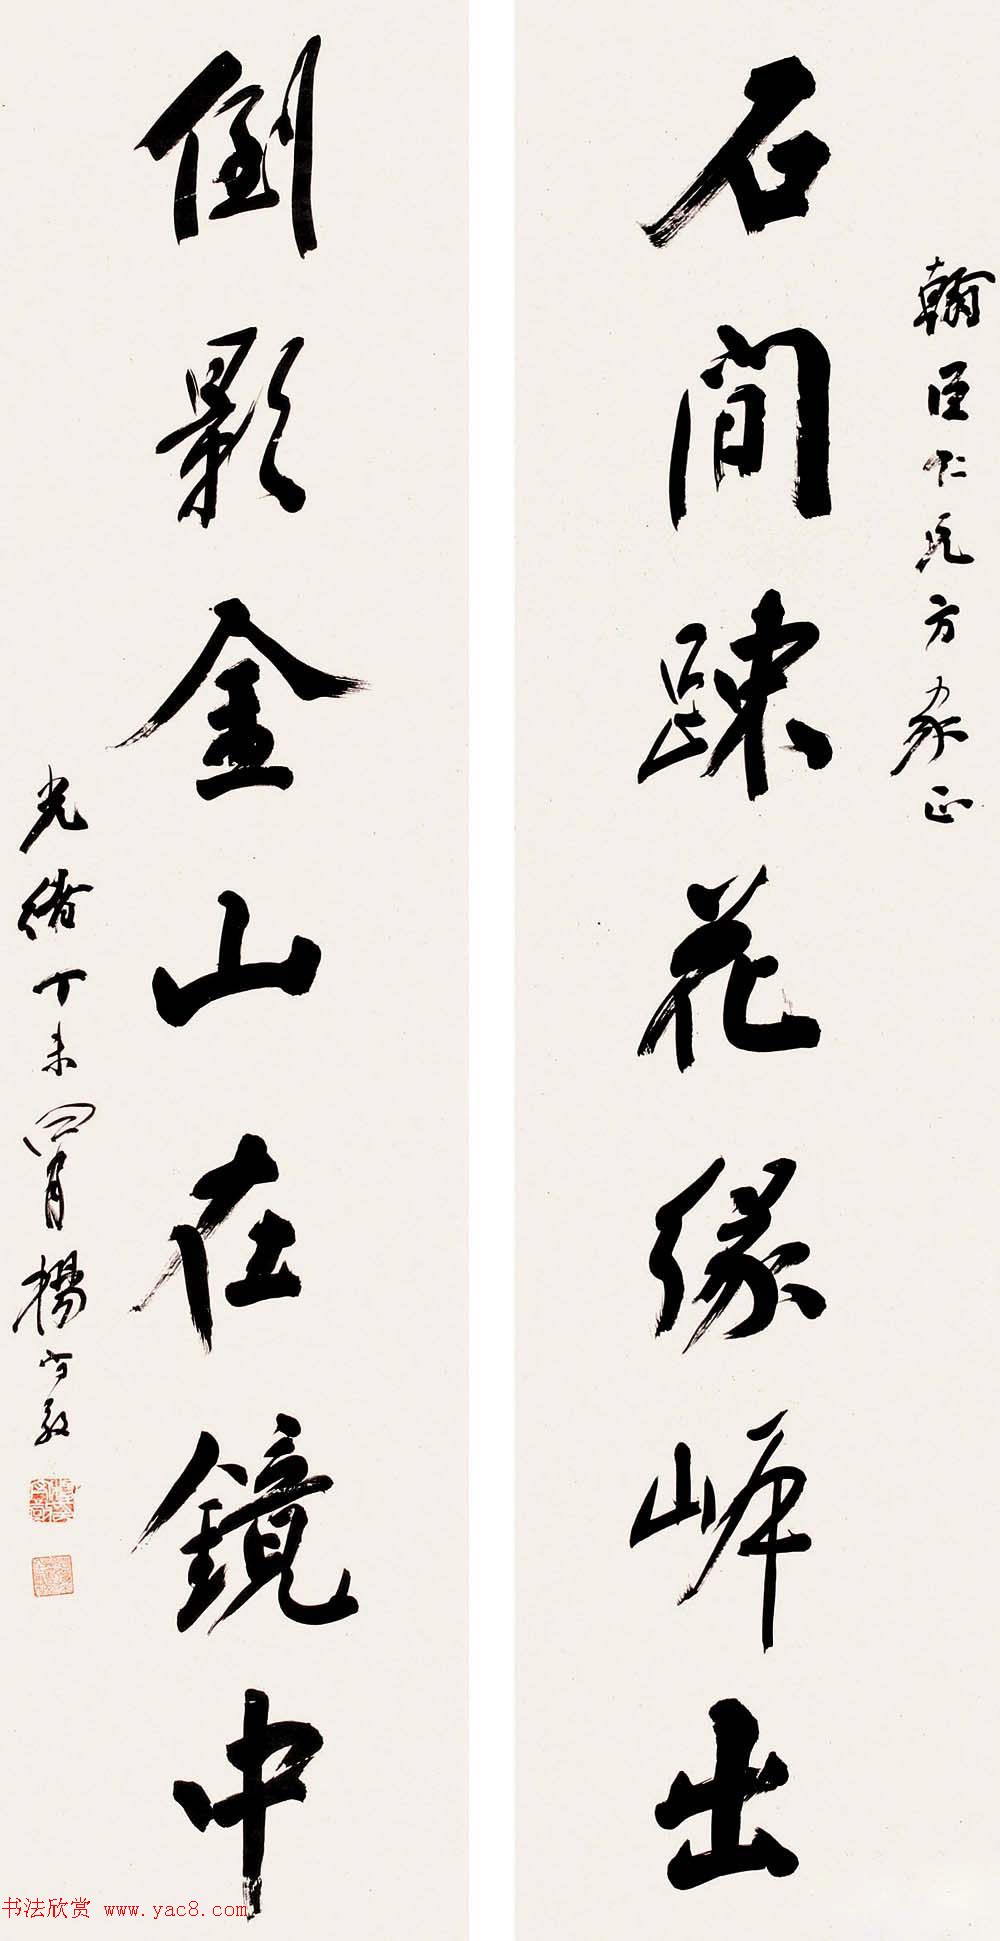 翰臣仁兄方家正
石間踈花緣岸出
倒影金山在鏡中
光緒丁未四月楊守敬
书法欣赏 www.yac8.com